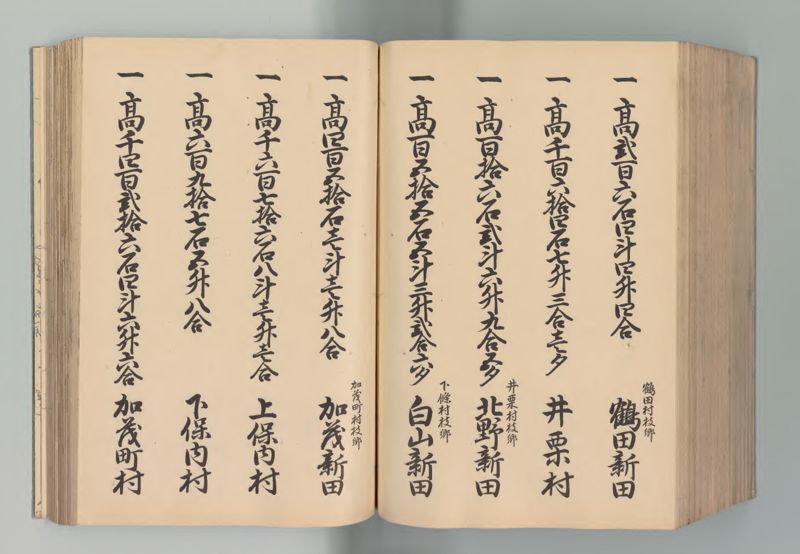 一 高弐百六石四斗四升四合
鶴田村枝郷
鶴田新田
一 高千百六拾四石七升三合壱夕
井栗村
一 高百拾六石弐斗六升九合五夕
井栗村枝郷
北野新田
一 高百五拾五石五斗三升弐合六夕
下條村枝郷
白山新田
一 高四百五拾石壱斗壱升八合
加茂町村枝郷
加茂新田
一 高千六百七拾六石八斗壱升壱合
上保内村
一 高六百九拾七石五升八合
下保内村
一 高千四百弐拾六石四斗六升六合
加茂町村